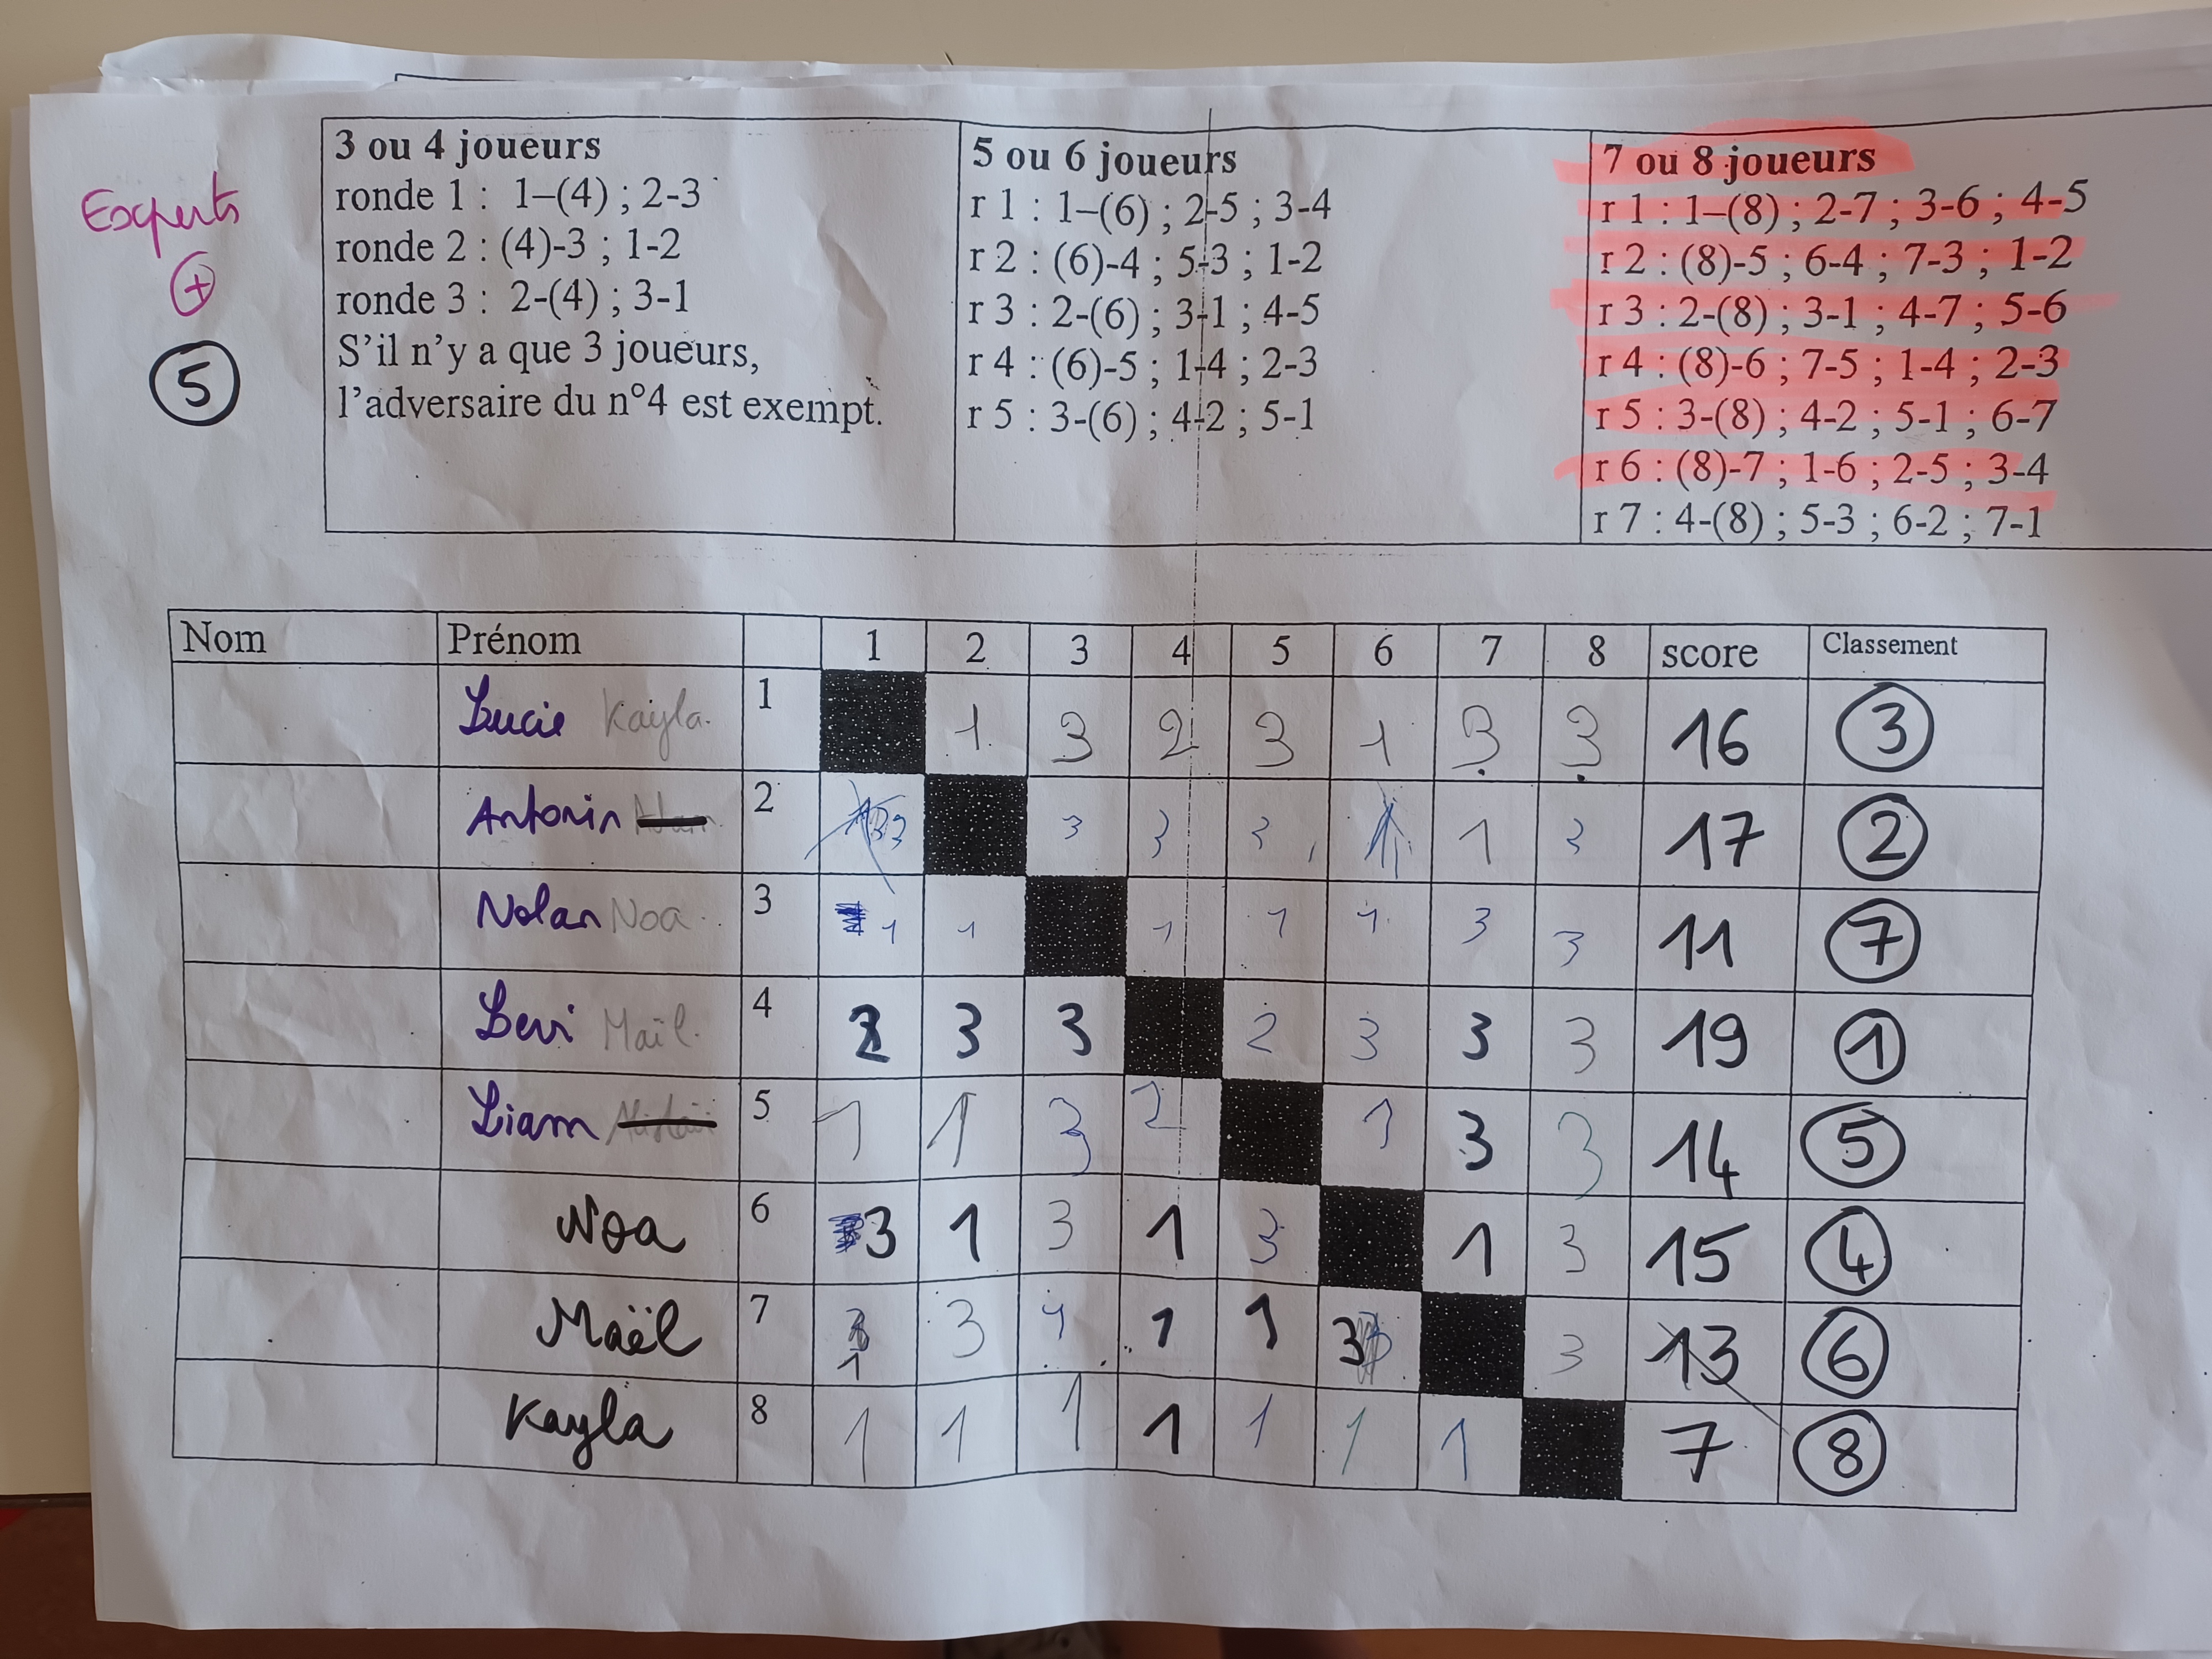 Experts
+
5
3 ou 4 joueurs
ronde 1 : 1–(4) ; 2-3
ronde 2 : (4)-3 ; 1-2
ronde 3 : 2-(4) ; 3-1
S'il n'y a que 3 joueurs,
l'adversaire du n°4 est exempt.
5 ou 6 joueurs
r 1 : 1–(6) ; 2-5 ; 3-4
r 2 : (6)-4 ; 5-3 ; 1-2
r 3 : 2-(6) ; 3-1 ; 4-5
r 4 : (6)-5 ; 1-4 ; 2-3
r 5 : 3-(6) ; 4-2 ; 5-1
7 ou 8 joueurs
r 1 : 1–(8) ; 2-7 ; 3-6 ; 4-5
r 2 : (8)-5 ; 6-4 ; 7-3 ; 1-2
r 3 : 2-(8) ; 3-1 ; 4-7 ; 5-6
r 4 : (8)-6 ; 7-5 ; 1-4 ; 2-3
r 5 : 3-(8) ; 4-2 ; 5-1 ; 6-7
r 6 : (8)-7 ; 1-6 ; 2-5 ; 3-4
r 7 : 4-(8) ; 5-3 ; 6-2 ; 7-1
Nom Prénom 1 2 3 4 5 6 7 8 score Classement
Lucie Kayla 1 1 3 2 3 1 3 3 16 3
Antonin 2 3 3 3 3 1 1 3 17 2
Nolan Noa 3 1 1 1 1 1 3 3 11 7
Levi Maïl 4 2 3 3 2 3 3 3 19 1
Liam 5 1 1 3 2 1 3 3 14 5
Noa 6 3 1 3 1 3 1 3 15 4
Maël 7 1 3 1 1 1 3 3 13 6
Kayla 8 1 1 1 1 1 1 1 7 8